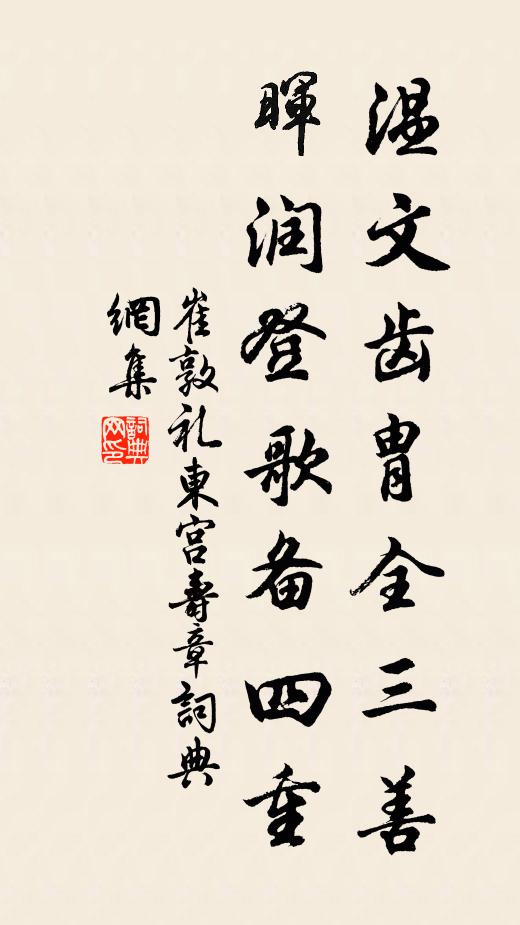 温文齿胄全三善
暉润登歌备四重
崔敦礼東宫壽章詞典
網集
詞典网印